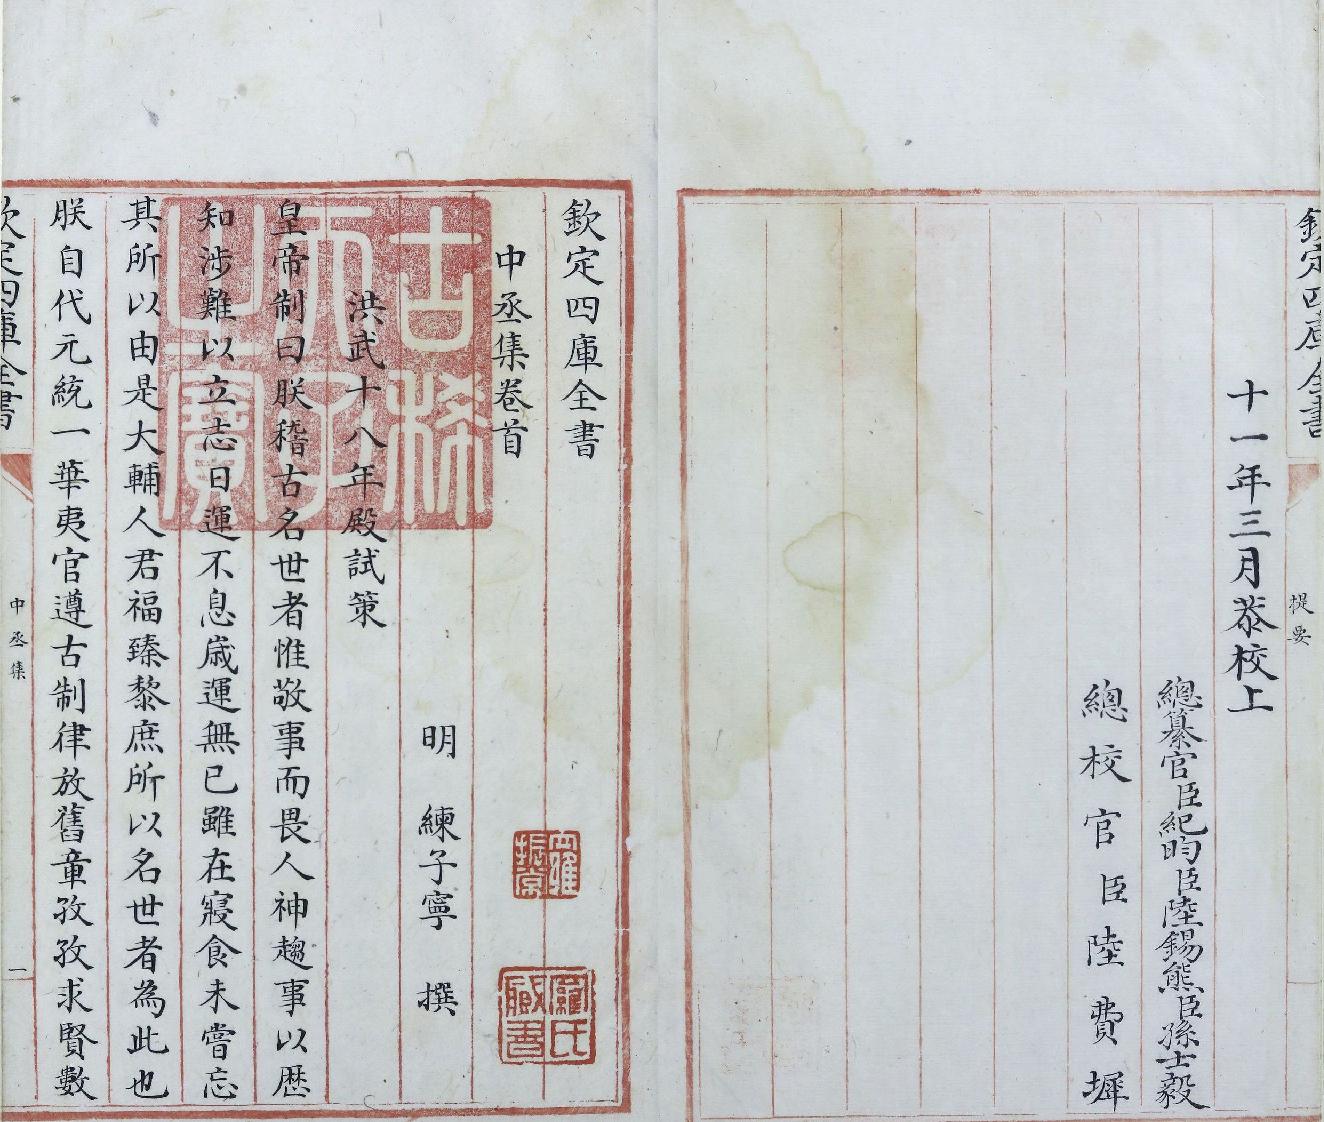 欽定四庫全書
提要
十一年三月恭校上
總纂官臣紀昀臣陸錫熊臣孫士毅
總校官臣陸費墀
欽定四庫全書
中丞集卷首
明 練子寧 撰
洪武十八年殿試策
皇帝制曰朕稽古名世者惟敬事而畏人神趨事以歷
知涉難以立志日運不息歲運無已雖在寢食未嘗忘
其所以由是大輔人君福臻黎庶所以名世者為此也
朕自代元統一華夷官遵古制律放舊章孜孜求賢數
欽定四庫全書
中丞集
一
古稀天子之寶
羅振常
羅氏藏書